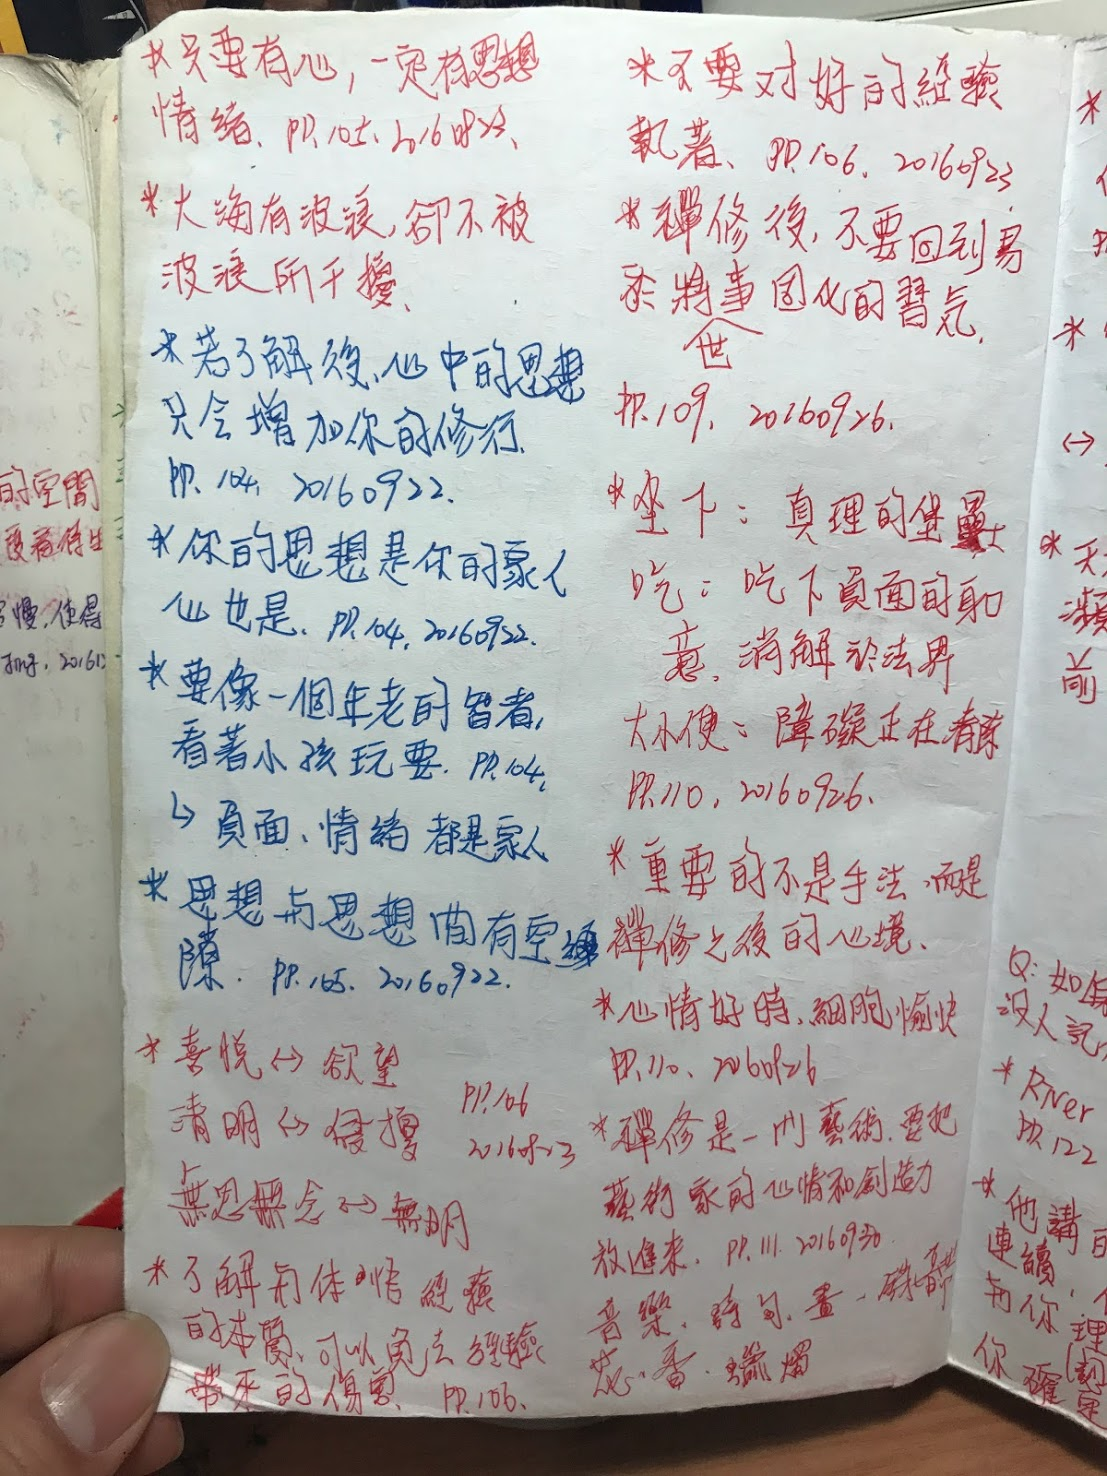 的空間
慢,使得
*只要有心,一定有思想
情緒、PP.105.20160923、
*大海有波浪,卻不被
波浪所干擾、
*若了解後、心中的思想
只会增加你的修行、
PP.104. 20160922.
*你的思想是你的家人
心也是、PP.104.20160922.
*要像一個年老的智者,
看著小孩玩耍. PP.104.
↳負面、情緒都是家人
*思想与思想間有空
隙. PP.105. 20160922.
*喜悅↔欲望
清明↔侵擾 PP.106
無思無念↔無明 20160923
*了解与体悟經驗
的本質、可以免去經驗
帶來的傷害、PP.106.
*不要对好的經驗
執著、PP.106. 20160923.
*禪修後,不要回到易
於將事固化的習気.
世
PP.109. 20160926.
*坐下:真理的堡壘
吃:吃下負面的
意、消解於法界
大小便:障礙正在清除
PP.110. 20160926.
*重要的不是手法,而是
禪修之後的心境、
*心情好時、細胞愉快
PP.110、20160926
*禪修是一門藝術.要把
藝術家的心情和創造力
放進來、PP.111.20160930
音樂、詩句、畫、
花、香、蠟燭
*
*
↔
*天
瀕
前
Q:如何
沒人記
*River
PP.122
*他講
連續,
与你理
你確定